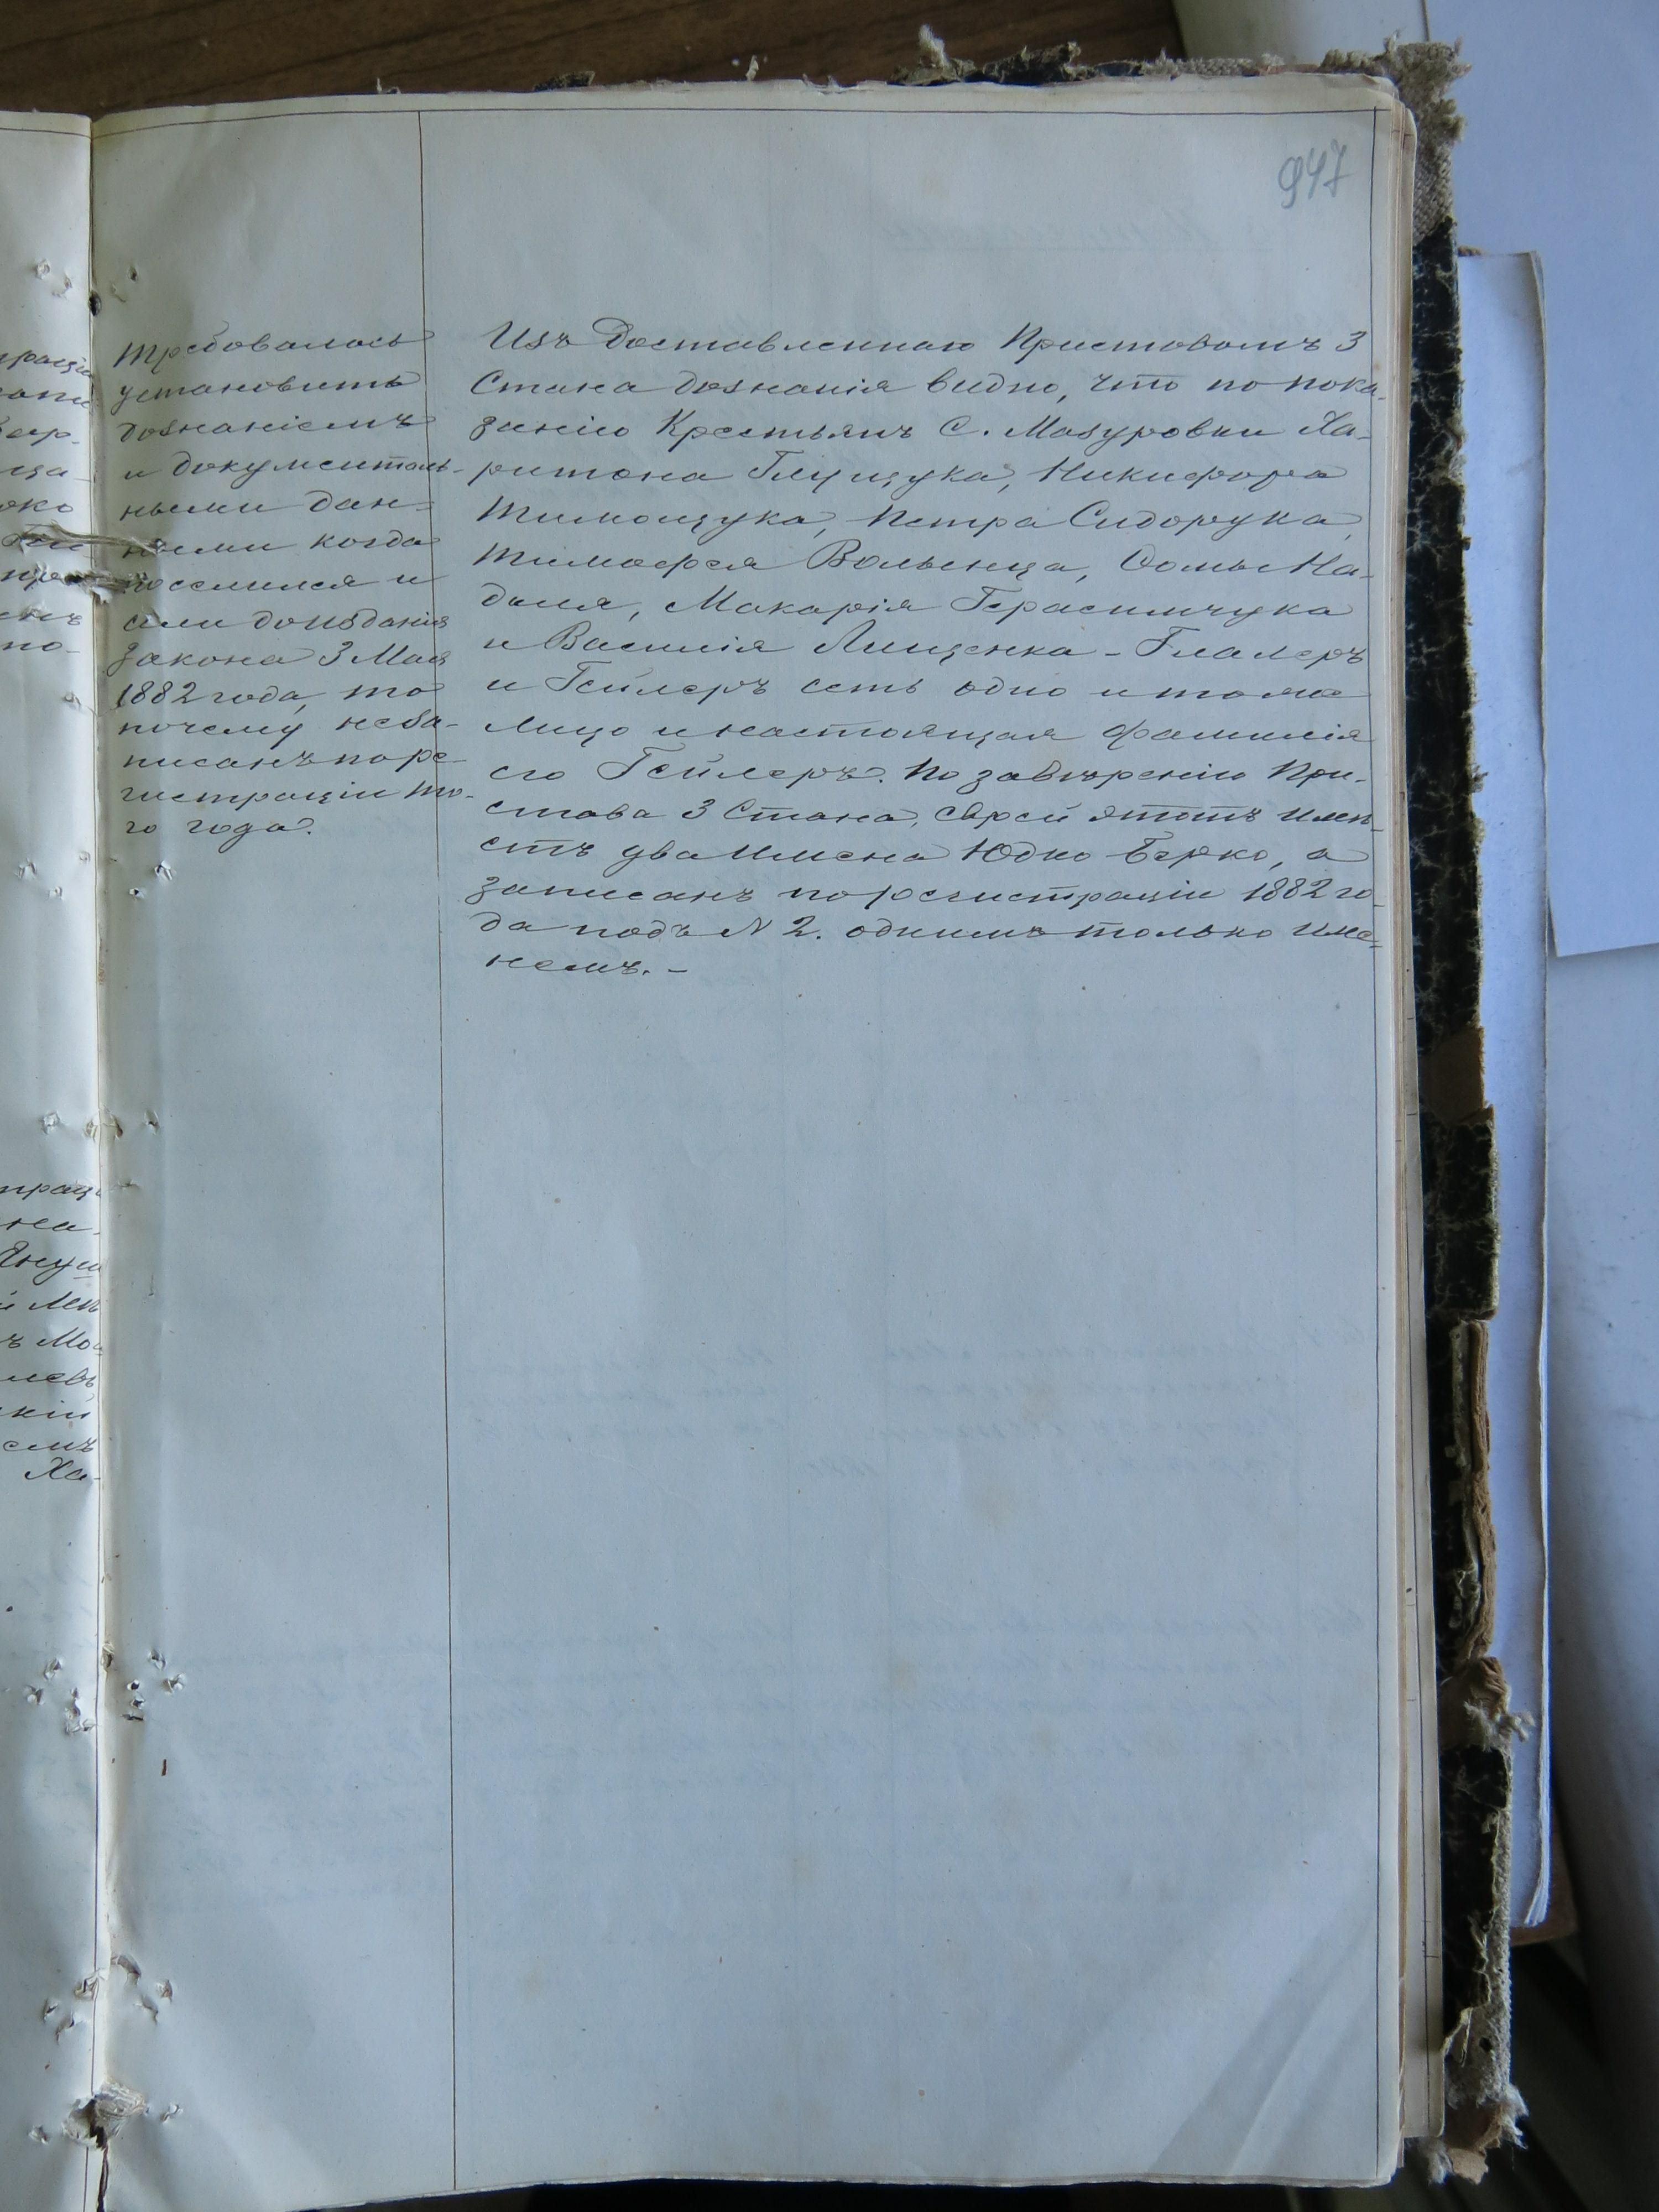 947
Требовалось
установить
дознаніемъ
и документаль-
ными дан-
ными когда
поселился и
если доизданія
закона 3 Мая
1882 года, то
почему неза-
писанъ поре-
гистраціи то-
го года.
Изъ доставленнаго Приставомъ 3
Стана дознанія видно, что по пока-
занію Крестьянъ С. Мазуровки Ха-
ритона Глущука, Никифора
Тимощука, Петра Сидорука,
Тимофея Волынца, Ѳомы На-
дыля, Макарія Герасимчука
и Василія Лищенка - Гламеръ
и Гейлеръ есть одно и тоже
лицо и настоящая фамилія
его Гейлеръ. По завѣренію При-
става 3 Стана, Еврей этотъ имѣ-
етъ два имена Юдко-Берко, а
записанъ порегистраціи 1882 го-
да подъ N 2. однимъ только име-
немъ. -
траці
на-
Яну
Мо
кій
емъ
Ха-